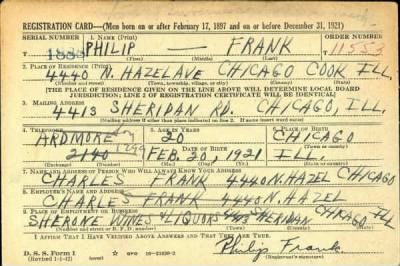 REGISTRATION CARD—(Men born on or after February 17, 1897 and on or before December 31, 1921)
SERIAL NUMBER 1. NAME (Print) ORDER NUMBER
1888 PHILIP — FRANK 11553
(First) (Middle) (Last)
2. PLACE OF RESIDENCE (Print)
4440 N. HAZEL AVE CHICAGO COOK ILL.
(Number and street) (Town, township, village, or city) (County) (State)
[THE PLACE OF RESIDENCE GIVEN ON THE LINE ABOVE WILL DETERMINE LOCAL BOARD
JURISDICTION; LINE 2 OF REGISTRATION CERTIFICATE WILL BE IDENTICAL]
3. MAILING ADDRESS
4413 SHERIDAN RD. CHICAGO, ILL.
[Mailing address if other than place indicated on line 2. If same insert word same]
4. TELEPHONE 5. AGE IN YEARS 6. PLACE OF BIRTH
ARDMORE 20 CHICAGO
DATE OF BIRTH (Town or county)
2140 1299 FEB. 20, 1921 ILL
(Exchange) (Number) (Mo.) (Day) (Yr.) (State or country)
7. NAME AND ADDRESS OF PERSON WHO WILL ALWAYS KNOW YOUR ADDRESS
CHARLES FRANK 4440 N. HAZEL CHICAGO
8. EMPLOYER'S NAME AND ADDRESS
CHARLES FRANK 4440 N. HAZEL
9. PLACE OF EMPLOYMENT OR BUSINESS
SHERONE WINES & LIQUORS 4413 SHERIDAN CHICAGO ILL
(Number and street or R. F. D. number) (Town) (County) (State)
I AFFIRM THAT I HAVE VERIFIED ABOVE ANSWERS AND THAT THEY ARE TRUE.
D. S. S. Form 1
(Revised 1-1-42) GPO 16—21630-2
Philip Frank
(Registrant's signature)